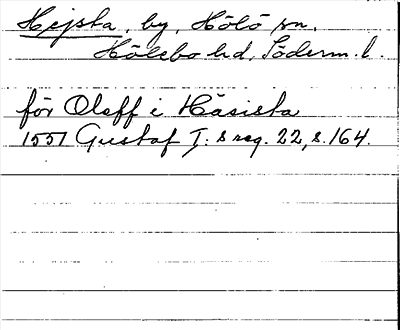 Hejsta, by, Hölö sn.
Hölebo hd, Söderm. l.
för Oleff i Häsista
1551 Gustaf I: s reg. 22, s. 164.